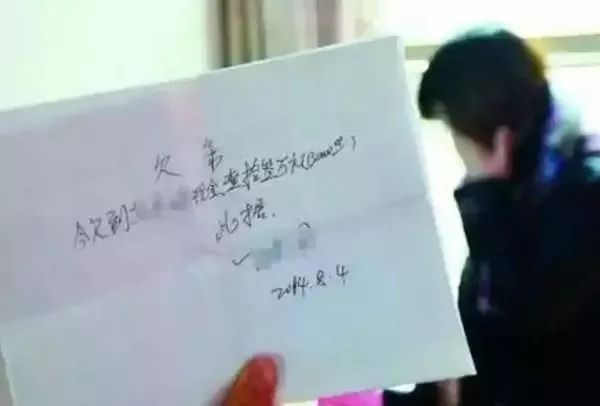 欠 条
今欠到 现金壹拾叁万元(130000元)
此据.
2014.8.4